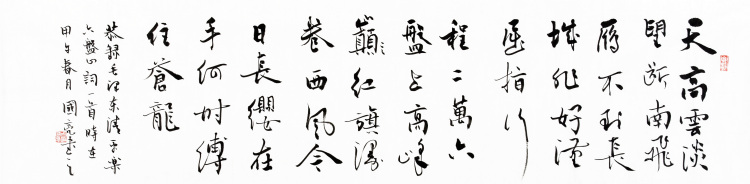 天高雲淡
望断南飛
雁不到長
城非好漢
屈指行
程二萬六
盤上高峰
巔紅旗漫
卷西風今
日長纓在
手何時縛
住蒼龍
恭録毛泽东清平樂
六盤山詞一首時在
甲午春月國亮